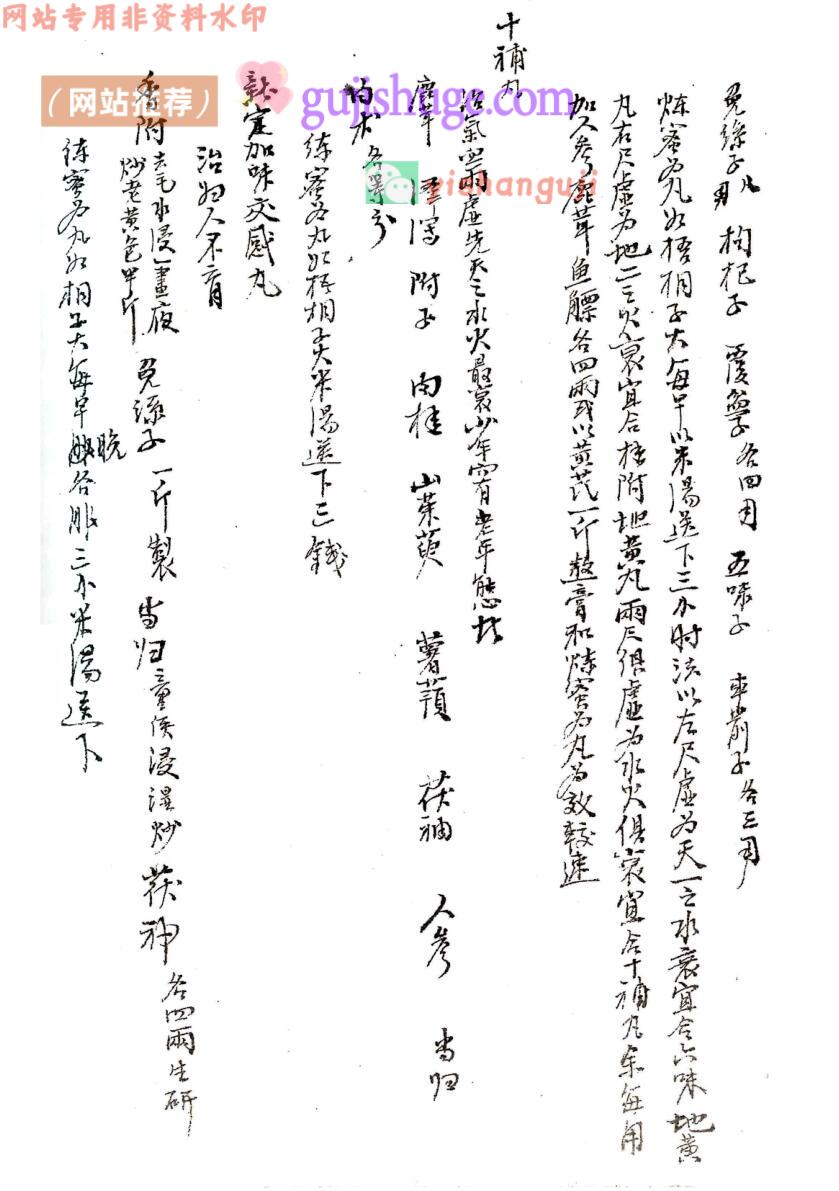 网站专用非资料水印
（网站推荐）
gujishuge.com
yishanguji
兔絲子八用 枸杞子 覆盆子各四用 五味子 車前子各三用
炼蜜為丸如梧桐子大每早以米湯送下三小时法以左尺虛為天一之水衰宜合六味地黄
丸右尺虛為地二之火衰宜合桂附地黄丸兩尺俱虛為水火俱衰宜合十補丸余每用
加人参鹿茸鱼鰾各四兩或以黄芪一斤熬膏和炼蜜為丸為效較速
十補丸
治氣血兩虛先天之水火最衰少年
鹿茸 澤瀉 附子 肉桂 山茱萸 薯蕷 茯神 人参 当归
白术各等分
練蜜為丸如梧桐子大米湯送下三錢
新定加味交感丸
治妇人不育
香附去毛水浸一晝夜炒老黄色半斤 兔絲子一斤製 当归童便浸湿炒 茯神各四兩生研
練蜜為丸如桐子大每早晚各服三小米湯送下